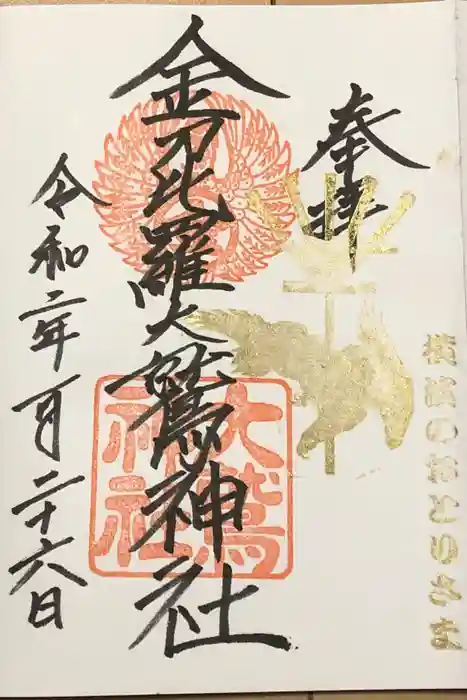 奉拝
横濱のおとりさま
金刀比羅大鷲神社
大鷲
神社
令和二年一月二十六日